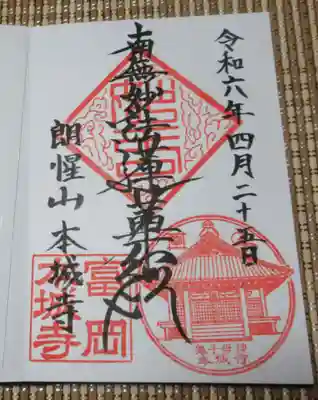 令和六年四月二十五日
南無妙法蓮華経
朗惺山 本城寺
富岡
本城寺